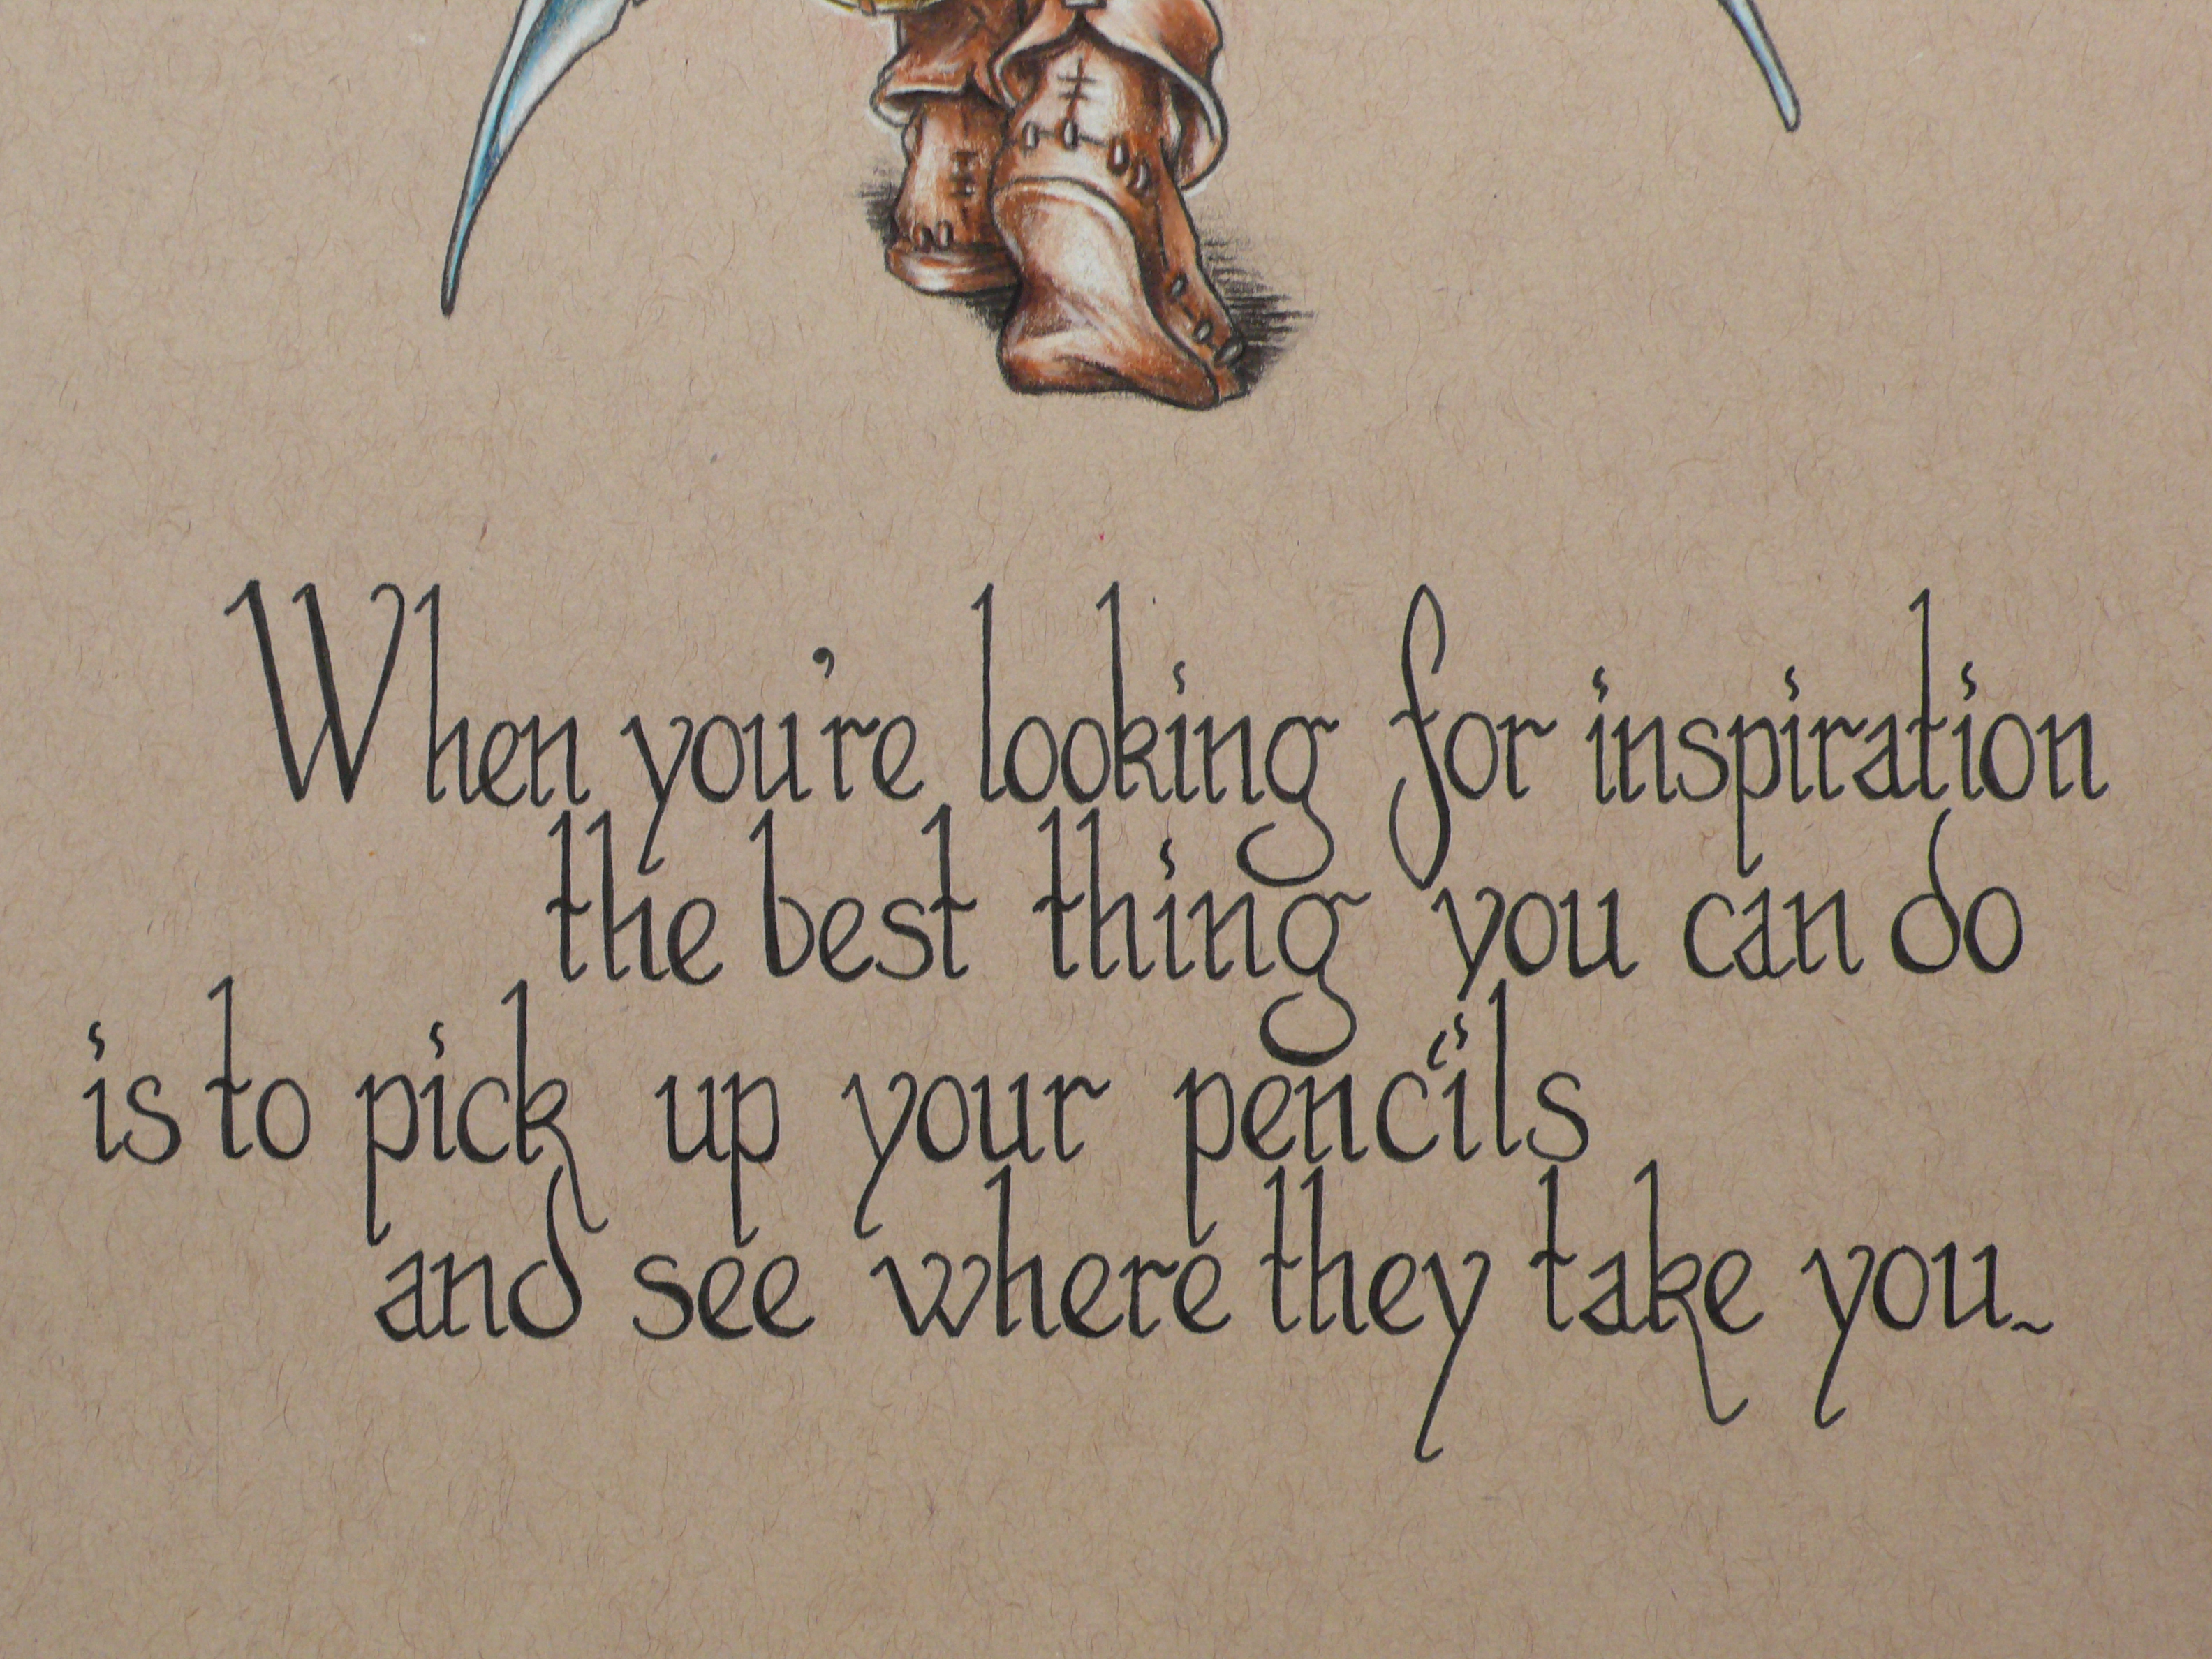 When you're looking for inspiration
the best thing you can do
is to pick up your pencils
and see where they take you~